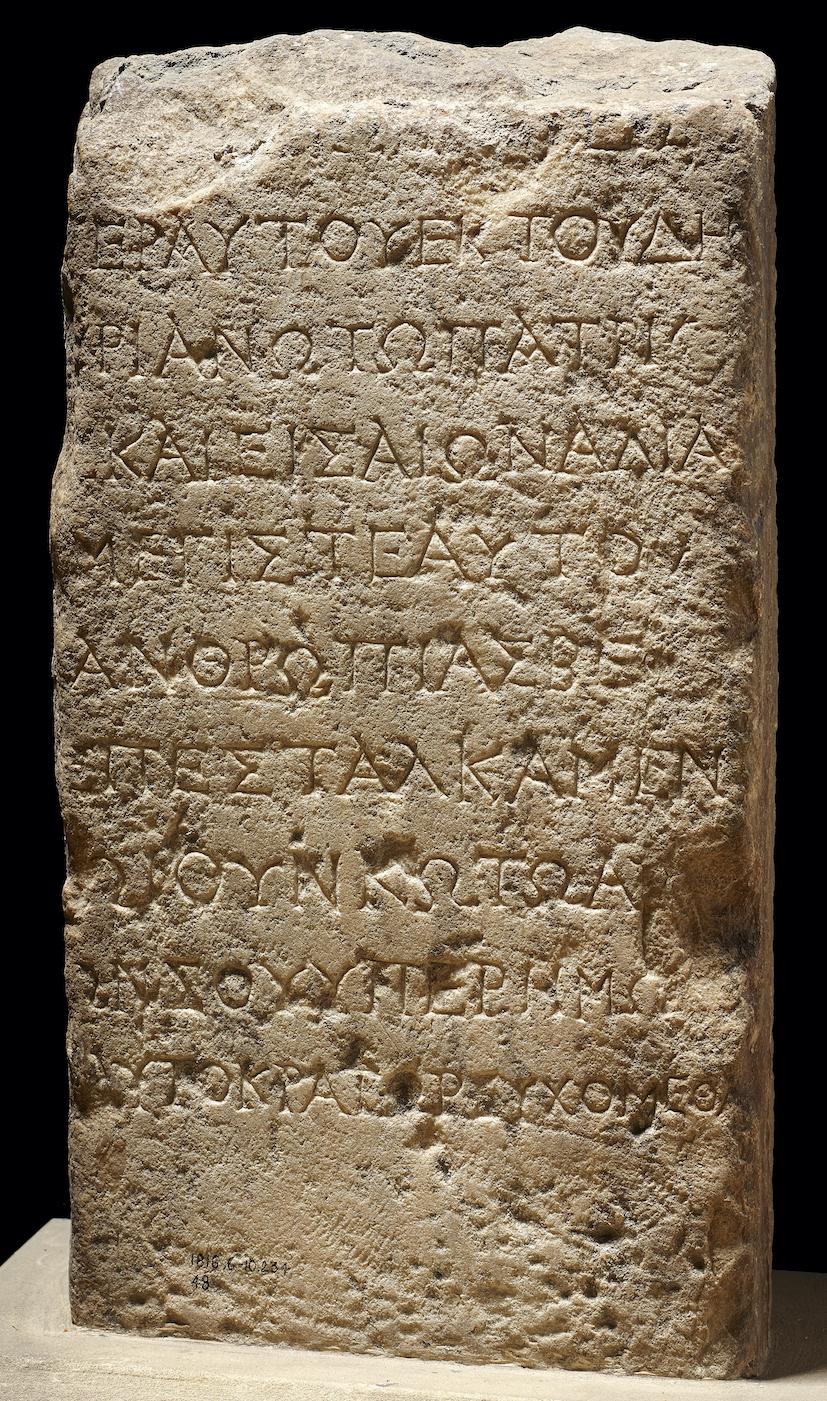 ΕΡΑΥΤΟΥΕΚΤΟΥΔΗ
ΡΙΑΝΩΤΩΠΑΤΡΙ
ΚΑΙΕΙΣΑΙΩΝΑΔΙΑ
ΜΕΓΙΣΤΕΑΥΤΟ
ΑΝΘΡΩΠΙΑΣΒΙΕ
ΕΠΕΣΤΑΛΚΑΜΕΝ
ΩΙΟΥΝΚΩΤΩΑ
ΣΟΥΥΠΕΡΗΜ
ΑΥΤΟΚΡΑΤΟΡΕΥΧΟΜΕΘΑ
1816.6-10.234
48